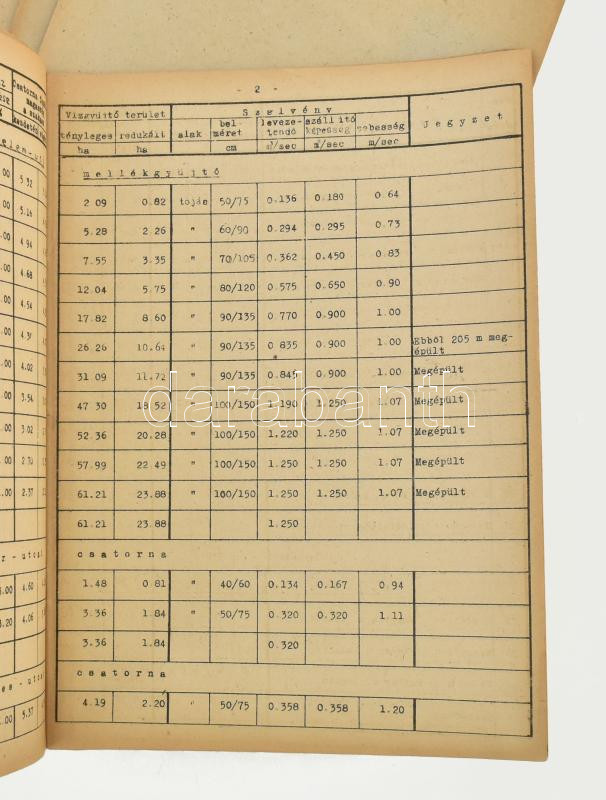 - 2 -
Vizgyüjtő terület Szelvény Jegyzet
tényleges redukált alak bel méret leveze- tendő szállitó képesség sebesség
ha ha cm m³/sec m³/sec m/sec
mellékgyüjtő
2 09 0.82 tojás 50/75 0.136 0.180 0.64
5.28 2.26 " 60/90 0.294 0.295 0.73
7.55 3.35 " 70/105 0.362 0.450 0.83
12.04 5.75 " 80/120 0.575 0.650 0.90
17.82 8.60 " 90/135 0.770 0.900 1.00
26.26 10.64 " 90/135 0 835 0.900 1.00 Ebből 205 m meg-
épült
31 09 11.72 " 90/135 0.845 0.900 1.00 Megépült
47 30 18 52 " 100/150 1.190 1.250 1.07 Megépült
52.36 20.28 " 100/150 1.220 1.250 1.07 Megépült
57.99 22.49 " 100/150 1.250 1.250 1.07 Megépült
61.21 23.88 " 100/150 1.250 1.250 1.07 Megépült
61.21 23.88 1.250
csatorna
1.48 0 81 " 40/60 0.134 0.167 0.94
3.36 1.84 " 50/75 0.320 0.320 1.11
3.36 1.84 0.320
csatorna
4.19 2.20 " 50/75 0.358 0.358 1.20
darabanth
5.32
5.16
4.94
4.68
4.54
4.02
3.54
3.02
2.70
2.37
r-utca
4.60
4.06
es-utca
5.37